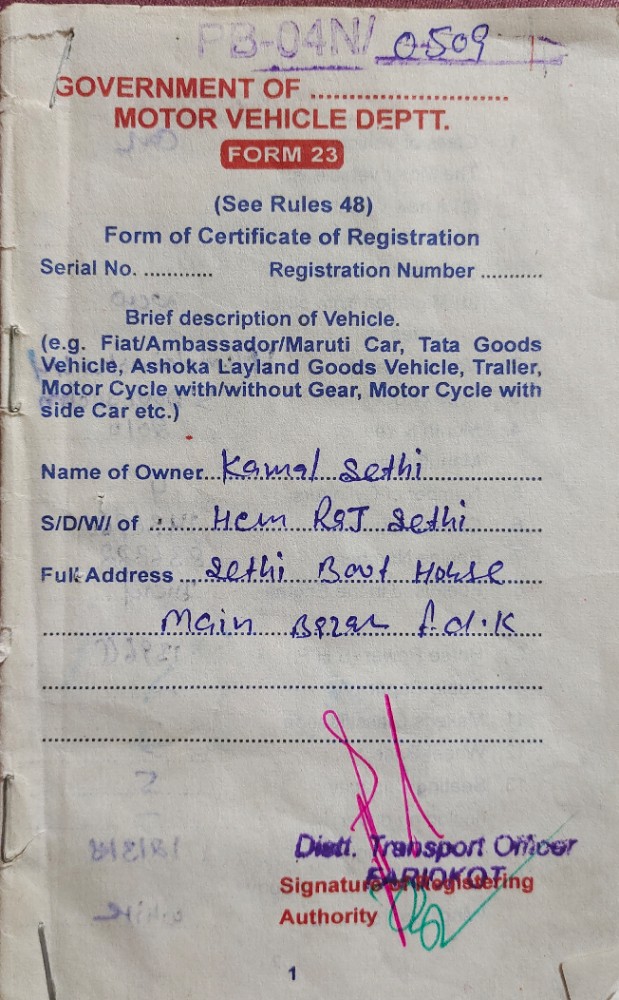 PB-04N/ 0509
GOVERNMENT OF ............................
MOTOR VEHICLE DEPTT.
FORM 23
(See Rules 48)
Form of Certificate of Registration
Serial No. ............ Registration Number ...........
Brief description of Vehicle.
(e.g. Fiat/Ambassador/Maruti Car, Tata Goods
Vehicle, Ashoka Layland Goods Vehicle, Traller,
Motor Cycle with/without Gear, Motor Cycle with
side Car etc.)
Name of Owner.. Kamal Sethi
S/D/W/ of ..... Hem Raj Sethi
Full Address ... Sethi Boot House
Main Bazar f.d.K
Distt. Transport Officer
FARIDKOT
Signature of Registering
Authority
1